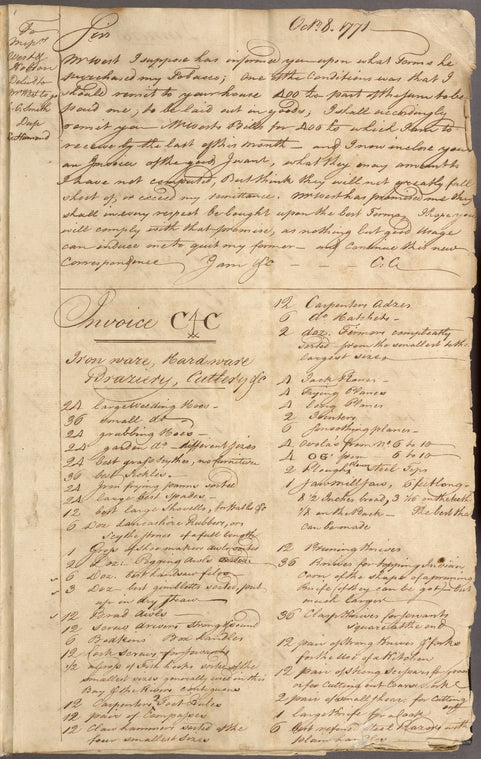 To
West &
Hobson
Deliv'd to
Mr West to go
Octbr 8. 1771
Sir
Mr West I suppose has informed you upon what Terms he
purchased my Tobacco; One of the Conditions was that I
should remit to your house 400 £ part of the sum to be
paid me, to be laid out in goods; I shall accordingly
remit you Mr Wests Bills for 400 £ which I am to
receive by the last of this Month – and I now inclose you
an Invoice of the goods I want, what they may amount to
I have not computed, But think they will not greatly fall
short of, or exceed my remittance. Mr West has promised me they
shall in every respect be bought upon the best Terms. I hope you
will comply with that promise, as nothing but good Usage
can induce me to quit my former – and continue this new
Correspondence I am &c – – C. C.
Invoice C C
Iron ware, Hardware
Braziery, Cuttlery &c
24 large Weeding Hoes –
36 small do
24 grubbing Hoes –
24 garden do different sizes
24 best grass Scythes, no furniture
36 best Sickles
24 Iron frying panns sorted
24 large best Spades –
12 best large Shovells, for &c
6 Doz Lancashire Rubbers, or
Scythe stones of a full length
1 Gross of Shoemakers awls sorted
2 Doz: Pegging awls
6 Doz. best handsaw files
3 Doz best gimbletts sorted put
up in dry straw
12 Brad awls
12 screw drivers strong & sound
6 Bodkins Box handles
12 Cork Screws for
1/2 a gross of Fish hooks sorted of the
smallest sizes generally used in this
Bay & the Rivers contiguous
12 Carpenters 2 Foot Rules
12 pair of Compasses
12 Claw hammers sorted of the
four smallest sizes
12 Carpenters Adzes
6 do Hatchets –
2 doz. Firmers compleatly
sorted from the smallest to the
largest size
4 Jack Planes –
4 Trying Planes
4 long Planes
2 Jointers
6 smoothing planes –
4 Ovolo's from No 6 to 10
4 OG's from 6 to 10
2 Ploughs Steel Tips
1 sawmill saw, 6 feet long
8 1/2 Inches broad, 3/16 on the teeth
1/8 on the Back – The best that
can be made
12 Pruning Knives
36 Knives for topping Indian
Corn of the shape of a pruning
Knife if they can be got – but
much larger
36 Clasp Knives for servants
Square at the end
12 pair of strong Knives & forks
for the use of a Kitchen
12 pair of strong Scissars
or for cutting out Coarse
2 pair of small shears for cutting
1 large Knife for a Cook
6 best refined steel Razors with